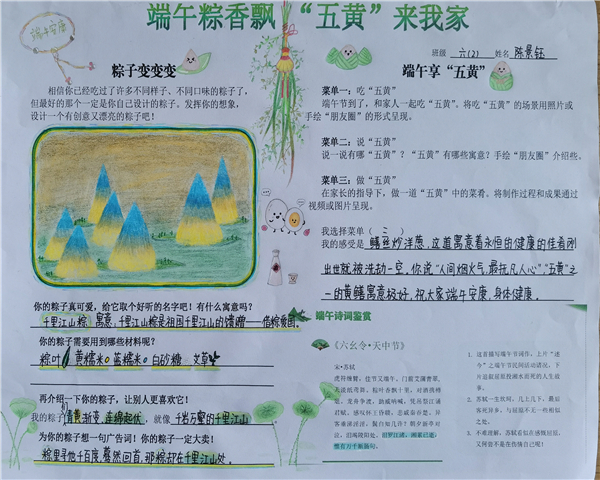 端午粽香飘 “五黄”来我家
端午安康
班级 六(2) 姓名 陈景钰
粽子变变变
相信你已经吃过了许多不同样子、不同口味的粽子了，
但最好的那个一定是你自己设计的粽子。发挥你的想象，
设计一个有创意又漂亮的粽子吧！
你的粽子真可爱，给它取个好听的名字吧！有什么寓意吗？
千里江山粽 寓意：千里江山粽是祖国千里江山的馈赠——借粽爱国。
你的粽子需要用到哪些材料呢？
粽叶 黄糯米 蓝糯米 白砂糖 艾草
再介绍一下你的粽子，让别人更喜欢它！
我的粽子青黄渐变，连绵起伏，就像 千岩万壑的千里江山
为你的粽子想一句广告词！你的粽子一定大卖！
粽里寻他千百度，蓦然回首，那粽却在千里江山处。
端午享“五黄”
菜单一：吃“五黄”
端午节到了，和家人一起吃“五黄”。将吃“五黄”的场景用照片或
手绘“朋友圈”的形式呈现。
菜单二：说“五黄”
说一说有哪“五黄”？“五黄”有哪些寓意？手绘“朋友圈”介绍些。
菜单三：做“五黄”
在家长的指导下，做一道“五黄”中的菜肴。将制作过程和成果通过
视频或图片呈现。
我选择菜单（ 三 ）
我的感受是 鳝丝炒洋葱，这道寓意着永恒的健康的佳肴刚
出世就被洗劫一空。你说“人间烟火气，最抚凡人心”，“五黄”之
一的黄鳝寓意极好，祝大家端午安康，身体健康。
端午诗词鉴赏
《六幺令·天中节》
宋·苏轼
虎符缠臂，佳节又端午。门前艾蒲青翠，
天淡纸鸢舞。粽叶香飘十里，对酒携樽
俎。龙舟争渡，助威呐喊，凭吊祭江诵
君赋。感叹怀王昏聩，悲戚秦吞楚。异
客垂涕淫淫，鬓白知几许？朝夕新亭对
泣，泪竭陵阳处。汨罗江渚，湘累已逝，
惟有万千断肠句。
1、这首描写端午节词作，上片“迷
2、苏轼一生坎坷，几上几下，最后
客死异乡，与屈原不无一些相似
之处。
3、不难理解，苏轼看似在感慨屈原，
又何尝不是在伤情自己呢！